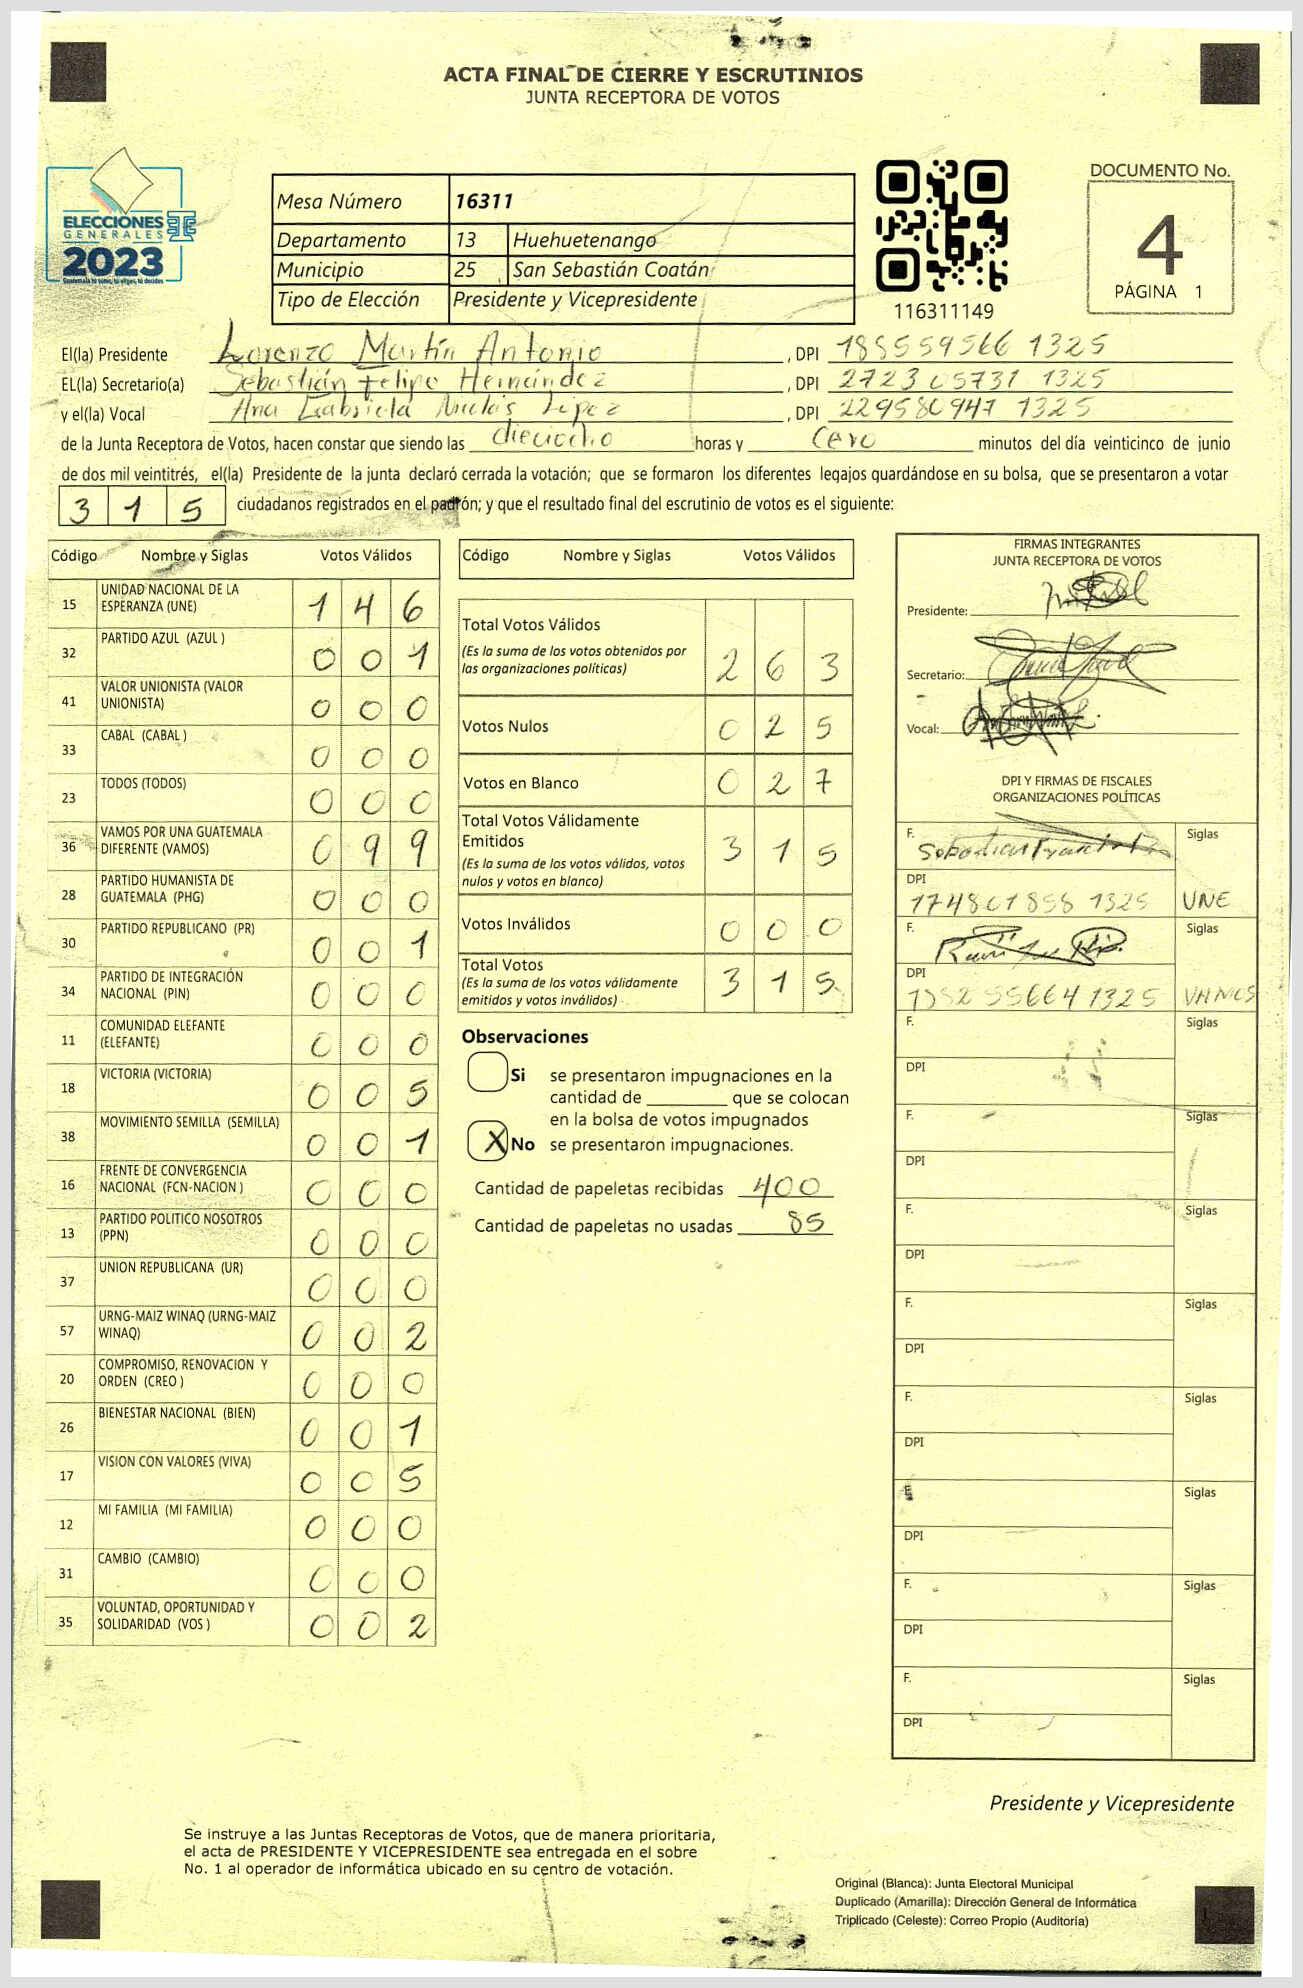 ACTA FINAL DE CIERRE Y ESCRUTINIOS
JUNTA RECEPTORA DE VOTOS
ELECCIONES
GENERALES
2023
Mesa Número 16311
Departamento 13 Huehuetenango
Municipio 25 San Sebastián Coatán
Tipo de Elección Presidente y Vicepresidente
116311149
DOCUMENTO No.
4
PÁGINA 1
El(la) Presidente Lorenzo Martín Antonio, DPI 185559566 1325
EL(la) Secretario(a) Sebastián Felipe Hernández, DPI 2723 05731 1325
y el(la) Vocal Ana Gabriela López, DPI 229580947 1325
de la Junta Receptora de Votos, hacen constar que siendo las dieciocho horas y cero minutos del día veinticinco de junio
de dos mil veintitrés, el(la) Presidente de la junta declaró cerrada la votación; que se formaron los diferentes legajos guardándose en su bolsa, que se presentaron a votar
315 ciudadanos registrados en el padrón; y que el resultado final del escrutinio de votos es el siguiente:
Código Nombre y Siglas Votos Válidos
15 UNIDAD NACIONAL DE LA
ESPERANZA (UNE) 146
32 PARTIDO AZUL (AZUL ) 001
41 VALOR UNIONISTA (VALOR
UNIONISTA) 000
33 CABAL (CABAL ) 000
23 TODOS (TODOS) 000
36 VAMOS POR UNA GUATEMALA
DIFERENTE (VAMOS) 099
28 PARTIDO HUMANISTA DE
GUATEMALA (PHG) 000
30 PARTIDO REPUBLICANO (PR) 001
34 PARTIDO DE INTEGRACIÓN
NACIONAL (PIN) 000
11 COMUNIDAD ELEFANTE
(ELEFANTE) 000
18 VICTORIA (VICTORIA) 005
38 MOVIMIENTO SEMILLA (SEMILLA) 001
16 FRENTE DE CONVERGENCIA
NACIONAL (FCN-NACION ) 000
13 PARTIDO POLITICO NOSOTROS
(PPN) 000
37 UNION REPUBLICANA (UR) 000
57 URNG-MAIZ WINAQ (URNG-MAIZ
WINAQ) 002
20 COMPROMISO, RENOVACION Y
ORDEN (CREO ) 000
26 BIENESTAR NACIONAL (BIEN) 001
17 VISION CON VALORES (VIVA) 005
12 MI FAMILIA (MI FAMILIA) 000
31 CAMBIO (CAMBIO) 000
35 VOLUNTAD, OPORTUNIDAD Y
SOLIDARIDAD (VOS ) 002
Código Nombre y Siglas Votos Válidos
Total Votos Válidos
(Es la suma de los votos obtenidos por
las organizaciones políticas) 263
Votos Nulos 025
Votos en Blanco 027
Total Votos Válidamente
Emitidos
(Es la suma de los votos válidos, votos
nulos y votos en blanco) 315
Votos Inválidos 000
Total Votos
(Es la suma de los votos válidamente
emitidos y votos inválidos) 315
Observaciones
Si se presentaron impugnaciones en la
cantidad de ________ que se colocan
en la bolsa de votos impugnados
X No se presentaron impugnaciones.
Cantidad de papeletas recibidas 400
Cantidad de papeletas no usadas 85
FIRMAS INTEGRANTES
JUNTA RECEPTORA DE VOTOS
Presidente:
Secretario:
Vocal:
DPI Y FIRMAS DE FISCALES
ORGANIZACIONES POLÍTICAS
F. Siglas
DPI
174801858 1325 UNE
F. Siglas
DPI
1325
F. Siglas
DPI
F. Siglas
DPI
F. Siglas
DPI
F. Siglas
DPI
F. Siglas
DPI
F. Siglas
DPI
F. Siglas
DPI
F. Siglas
DPI
Presidente y Vicepresidente
Se instruye a las Juntas Receptoras de Votos, que de manera prioritaria,
el acta de PRESIDENTE Y VICEPRESIDENTE sea entregada en el sobre
No. 1 al operador de informática ubicado en su centro de votación.
Original (Blanca): Junta Electoral Municipal
Duplicado (Amarilla): Dirección General de Informática
Triplicado (Celeste): Correo Propio (Auditoría)